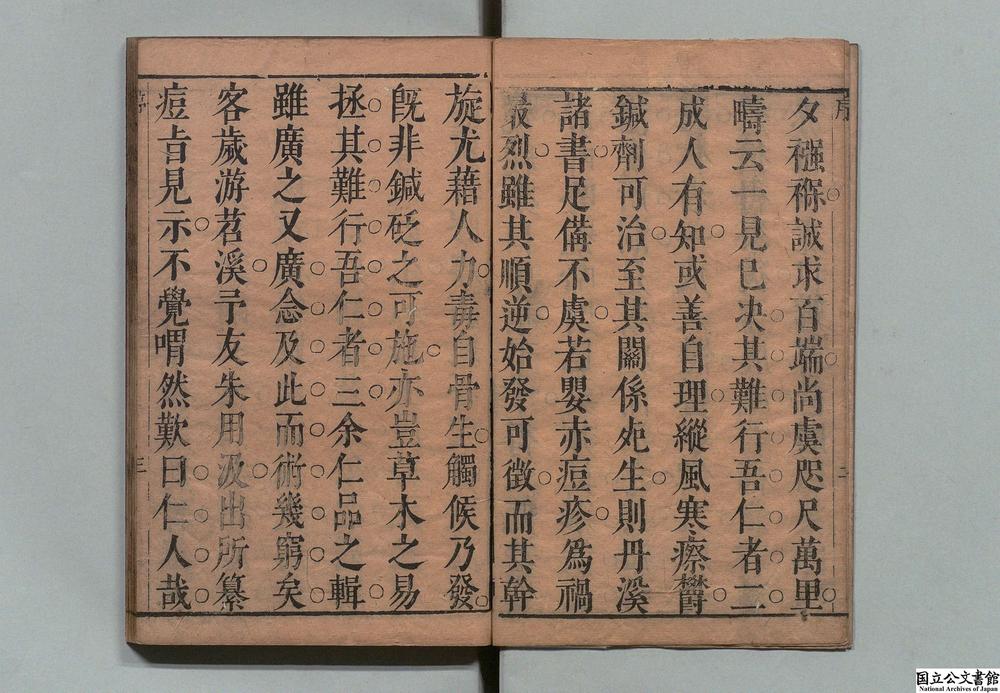 序
夕襁褓誠求百端尚虞咫尺萬里
疇云一見已决其難行吾仁者二
成人有知或善自理縱風寒瘵欝
鍼劑可治至其關係死生則丹溪
諸書足備不虞若嬰赤痘疹為禍
最烈雖其順逆始發可徵而其幹
二
旋尤藉人力毒自骨生觸候乃發
既非鍼砭之可施亦豈草木之易
拯其難行吾仁者三余仁品之輯
雖廣之又廣念及此而術幾窮矣
客歲游苕溪予友朱用汲出所纂
痘㫖見示不覺喟然歎曰仁人哉
序
三
国立公文書館
National Archives of Japan